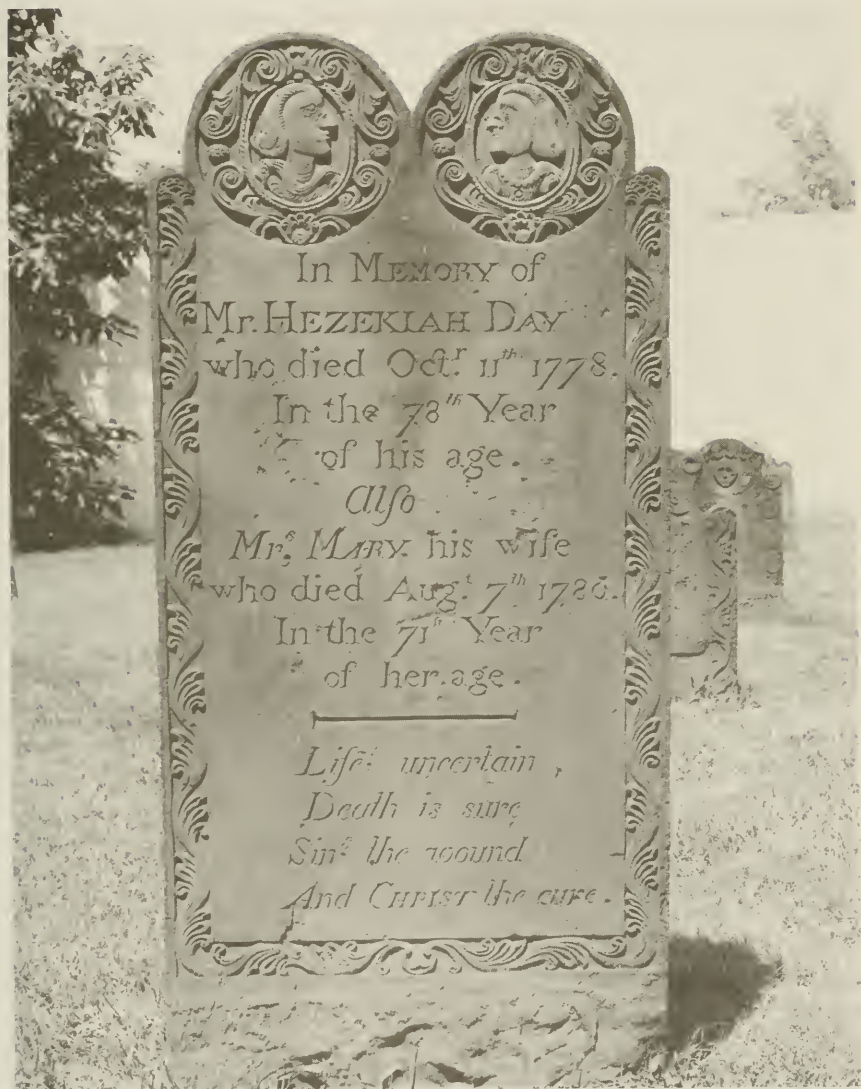 In MEMORY of
Mr. HEZEKIAH DAY
who died Octr. 11th 1778.
In the 78th Year
of his age.
Alſo
Mrs. MARY his wife
who died Augt. 7th 1786.
In the 71st Year
of her age.
Life's uncertain,
Death is sure
Sins the wound
And CHRIST the cure.